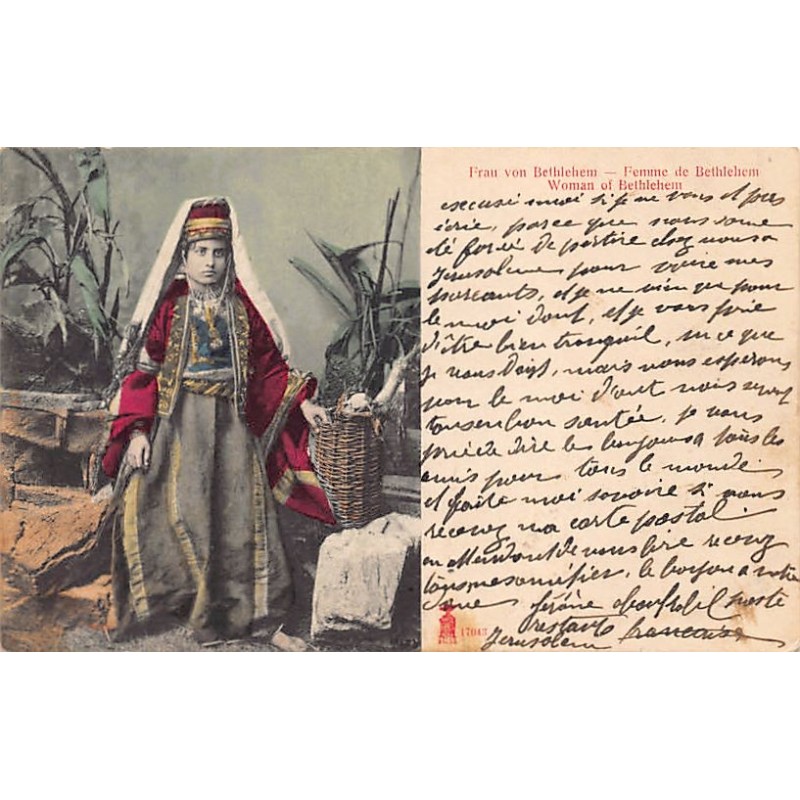 Frau von Bethlehem — Femme de Bethlehem
Woman of Bethlehem
excusé moi si je ne vous et pas
écrie, parce que nous some
été forcé de partire chez nous a
Jerusolem pour voire mes
parcants, et je ne vien que pour
le moi d'out, et je vous prie
d'être bien tranquil, sur ce que
je vous dois, mais nous esperons
pour le moi d'out
bon santée, je vous
prie de dire les bonjours a tous les
amis pour tous le monde
et faite moi savoire si vous
recevez ma carte postal.
en attendant de vous lire recevez
tous le bonjour a votre
Jérôme poste
restante francaise
Jerusolem
17043